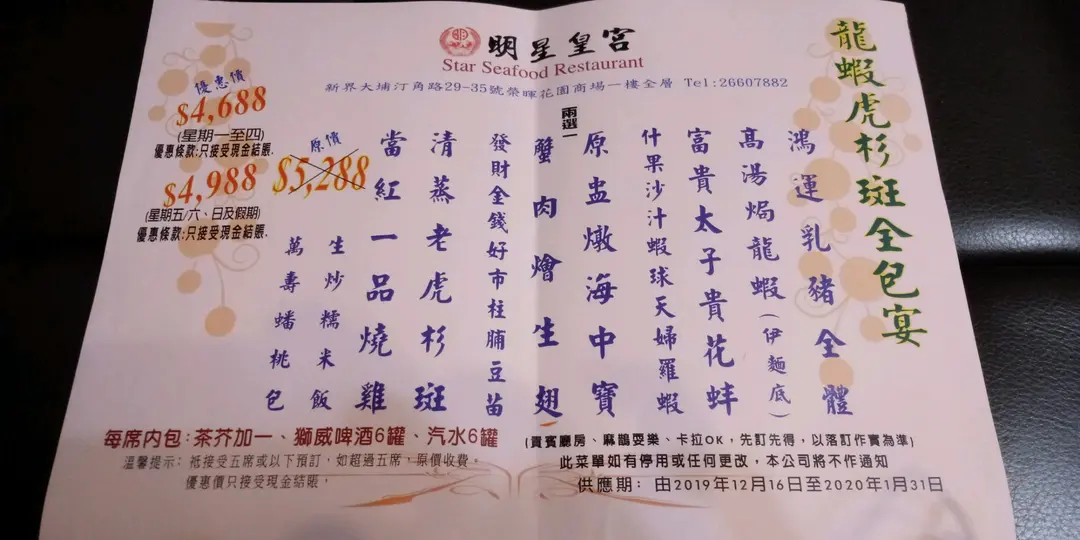 明星皇宮
Star Seafood Restaurant
新界大埔汀角路29-35號榮暉花園商場一樓全層 Tel:26607882
龍蝦虎杉斑全包宴
鴻運乳豬全體
高湯焗龍蝦(伊麵底)
富貴太子貴花蚌
什果沙汁蝦球天婦羅蝦
兩選一
原盅燉海中寶
蟹肉燴生翅
發財金錢好市柱脯豆苗
清蒸老虎杉斑
當紅一品燒雞
生炒糯米飯
萬壽蟠桃包
優惠價
$4,688
(星期一至四)
優惠條款:只接受現金結賬.
原價
$5,288
$4,988
(星期五/六、日及假期)
優惠條款:只接受現金結賬.
每席内包:茶芥加一、獅威啤酒6罐、汽水6罐
溫馨提示:祗接受五席或以下預訂,如超過五席,原價收費。
優惠價只接受現金結賬,
(貴賓廳房、麻鵲耍樂、卡拉OK,先訂先得,以落訂作實為準)
此菜單如有停用或任何更改,本公司將不作通知
供應期: 由2019年12月16日至2020年1月31日